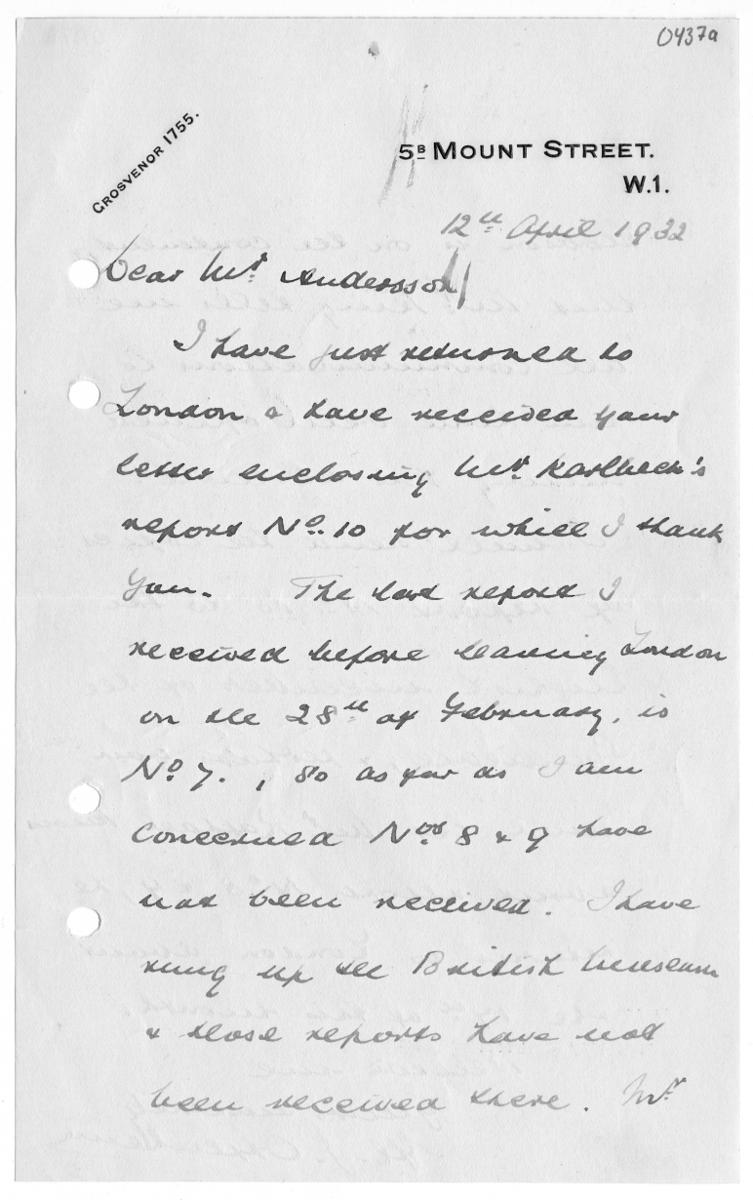 0437a
GROSVENOR 1755.
5B MOUNT STREET.
W.1.
12th April 1932
Dear Mr. Andersson
I have just returned to
London & have received your
letter enclosing Mr. Karlbeck's
report No. 10 for which I thank
you. The last report I
received before leaving London
on the 28th of February, is
No 7., so as far as I am
concerned Nos 8 & 9 have
not been received. I have
rung up the British Museum
& those reports have not
been received there. Mr.